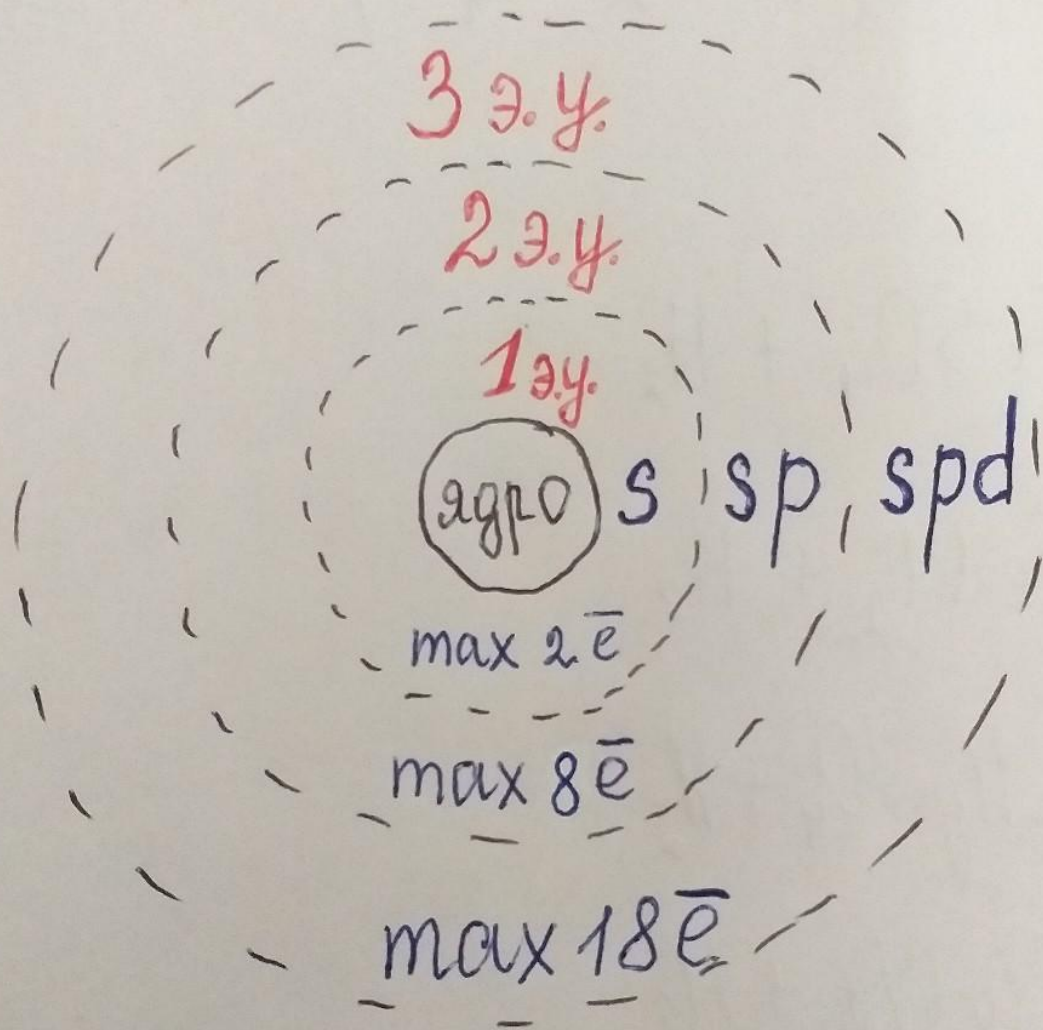 3 э.у.
2 э.у.
1 э.у.
ядро s sp spd
max 2 ē
max 8 ē
max 18 ē